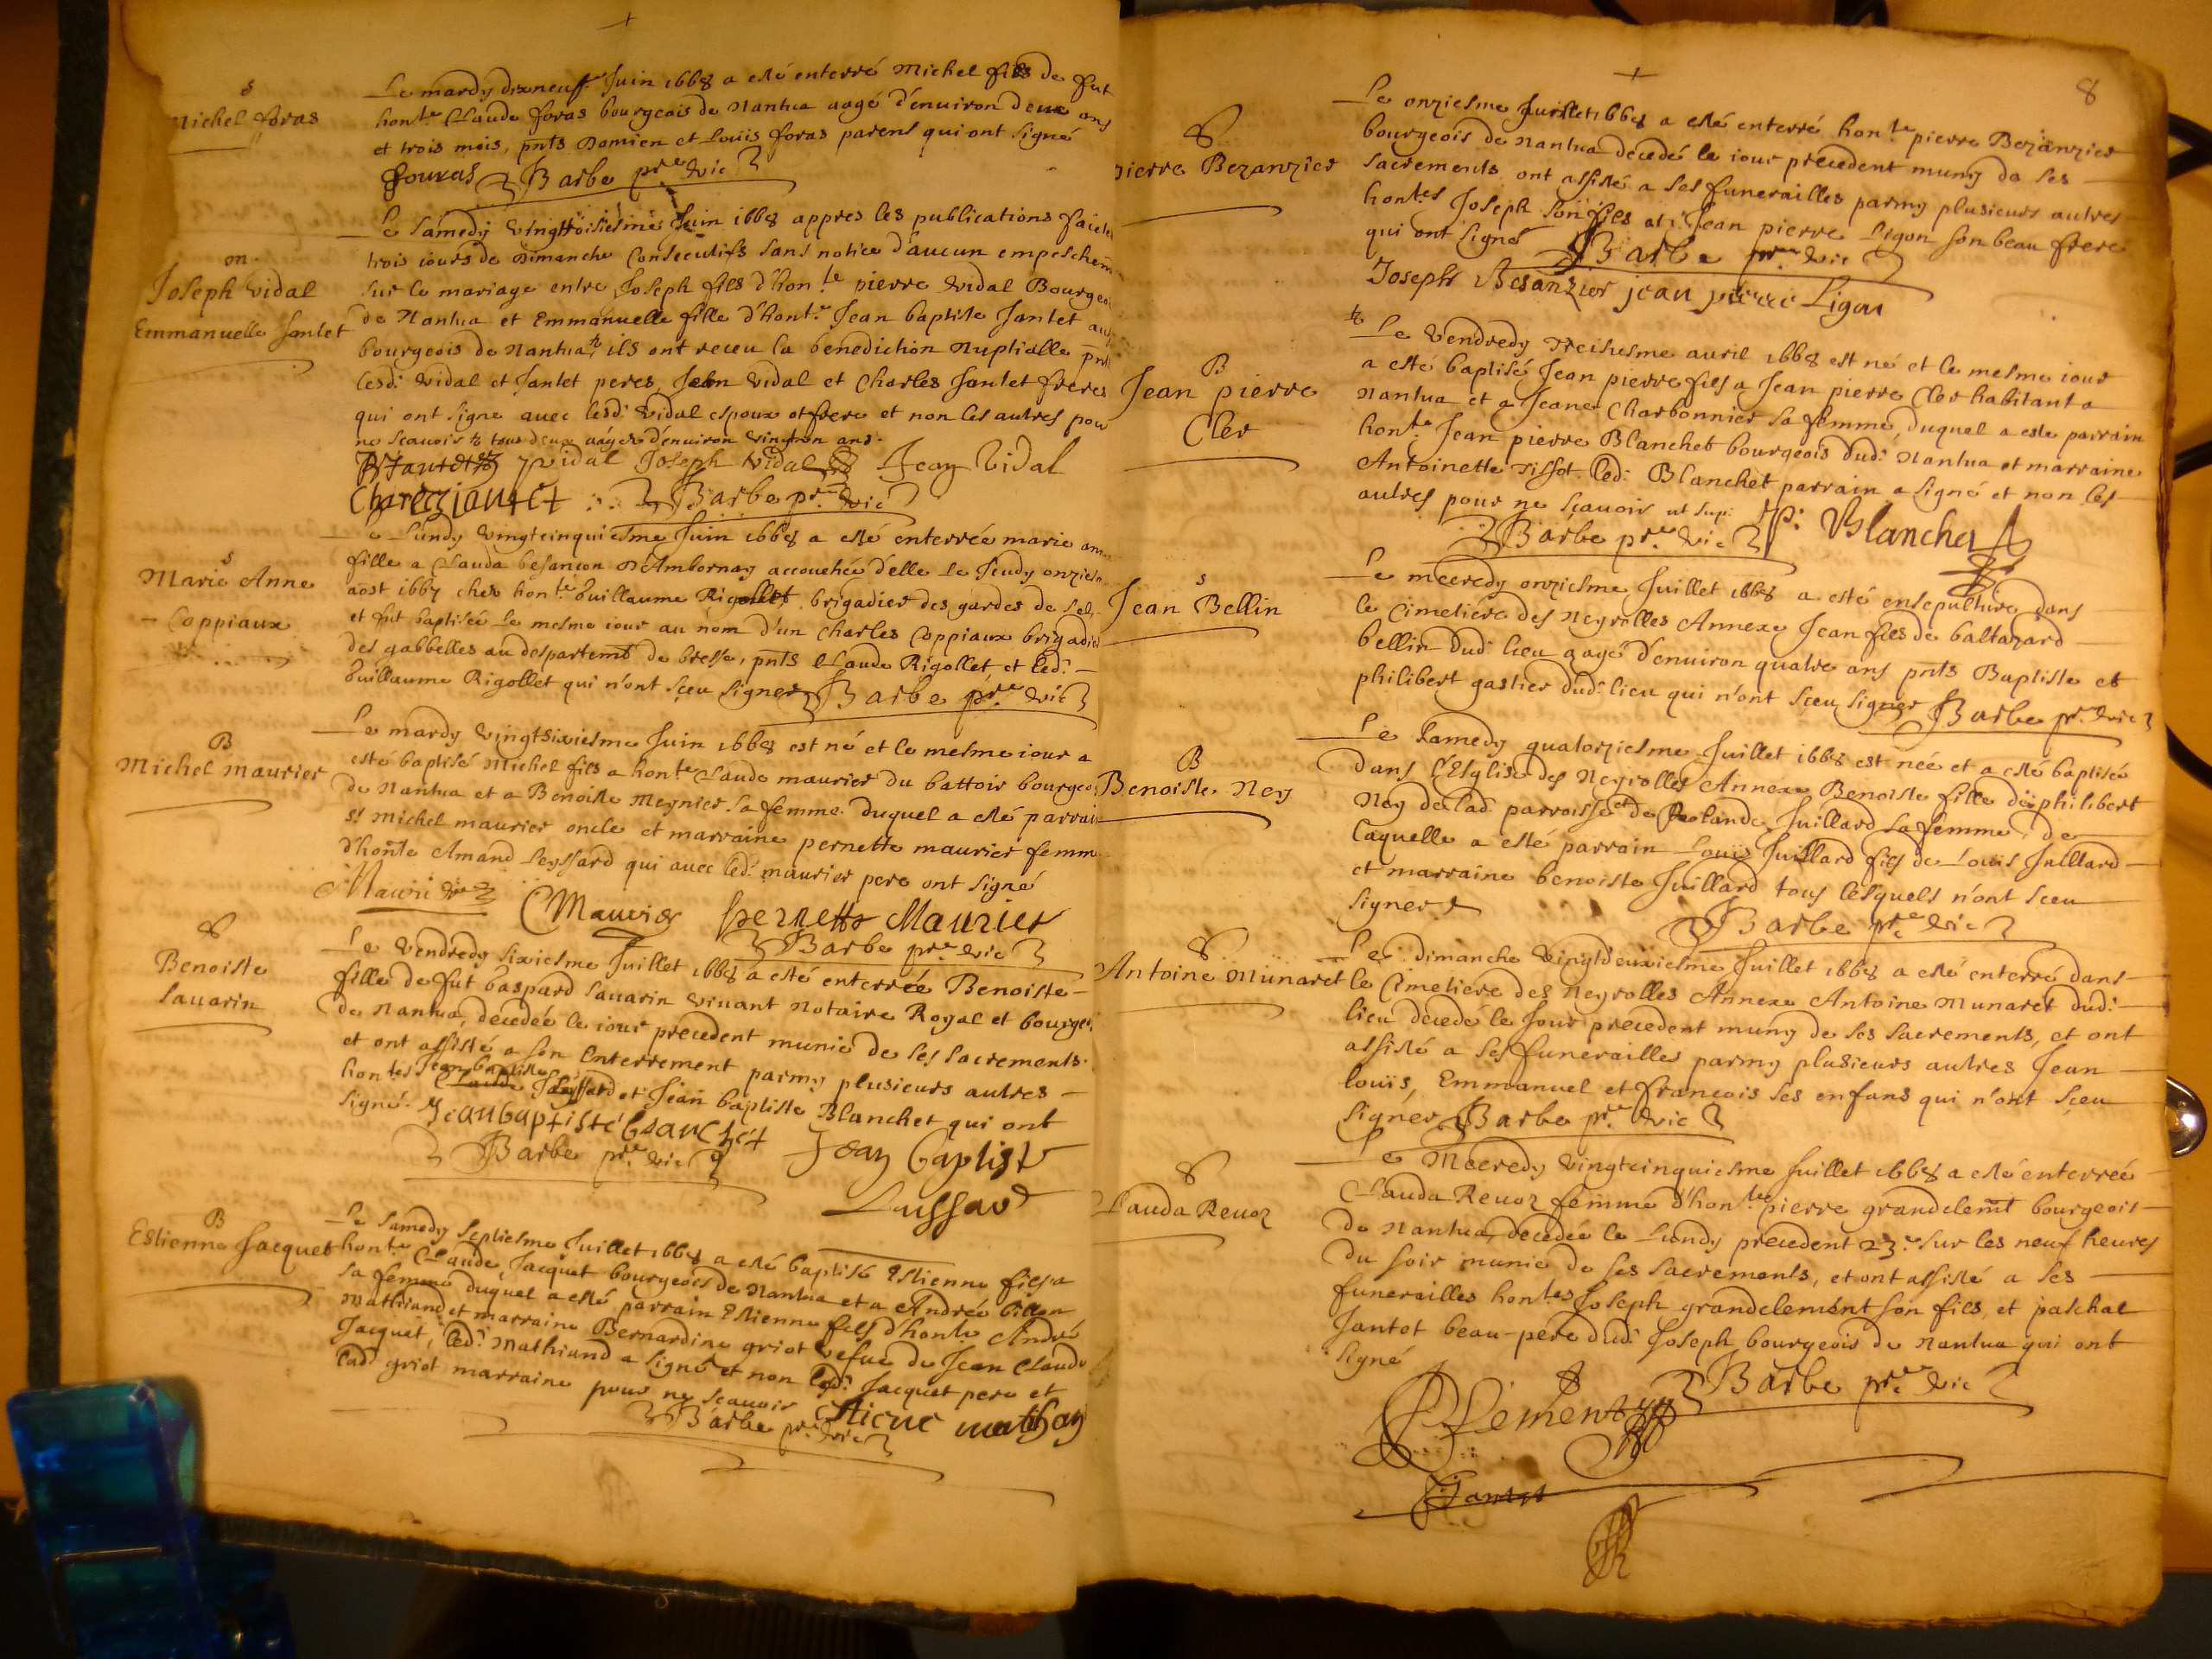 +
s
Michel foras
Le mardy dixneuf.e Juin 1668 a esté enterré Michel fils de fut
hon.te Claude foras bourgeois de Nantua aagé d'enuiron deux ans
et trois mois, pnts Damien et Louïs foras parens qui ont signé
fouras Barbe pr.e vic
m.
Joseph vidal
Emmanuelle Jantet
Le samedy vingttroisiesme Juin 1668 appres les publications faictes
trois iours de Dimanche consecutifs sans notice d'aucun empeschem
sur le mariage entre Joseph fils d'hon.te pierre vidal Bourgeo
de Nantua et Emmanuelle fille d'hont.e Jean baptiste Jantet au
bourgeois de Nantua, ils ont receu la benediction nuptialle pnts
lesd. vidal et Jantet peres, Jean vidal et Charles Jantet freres
qui ont signe auec lesd. vidal espoux et frere et non les autres pour
ne scauoir tous deux aagés d'enuiron vingt un ans.
Jantet vidal Joseph vidal Jean Vidal
Charles jantet Barbe pr.e vic
s
Marie Anne
Coppiaux
Le Lundy vingtcinquiesme Juin 1668 a esté enterrée marie an
fille a Clauda besancon d'Ambornay accouchée d'elle Le Jeudy onzies
aost 1667 chez hon.te Guillaume Rigollet brigadier des gardes de sel,
et fut baptisée Le mesme iour au nom d'un Charles Coppiaux brigadier
des gabbelles au despartemt de bresse, pnts Claude Rigollet et led.
Guillaume Rigollet qui n'ont sceu signer Barbe pr.e vic
B
Michel maurier
Le mardy vingtsixiesme Juin 1668 est né et le mesme iour a
esté baptisé Michel fils a hon.te Claude maurier du battoir bourgeo
de Nantua et a Benoiste Meynier sa femme. duquel a esté parrain
Sr michel maurier oncle et marraine pernette maurier femm
d'honte Amand Leyssard qui auec led. maurier pere ont signé
Maurier CMaurier pernette Maurier
Barbe pr.e vic
Benoiste
Sauarin
Le vendredy sixiesme Juillet 1668 a esté enterrée Benoiste
fille de fut Gaspard Sauarin viuant Notaire Royal et bourgeo
de Nantua, decedée le iour precedent munie de ses sacrements.
et ont assisté a son Enterrement parmy plusieurs autres
hontes Jean baptiste Leyssard et Jean baptiste Blanchet qui ont
signé. Jean baptiste blanchet
Barbe pr.e vic Jean baptiste
Leyssard
B
Estienne Jacquet
Le samedy septiesme Juillet 1668 a esté baptisé Estienne fils a
hont.e Claude Jacquet bourgeois de Nantua et a Andrée billon
sa femme duquel a esté parrain Estienne fils d'honte André
Mathiand et marraine Bernardine griot vefue de Jean Claude
Jacquet, led. Mathiand a signé et non led. Jacquet pere et
lad. griot marraine pour ne scauoir Estiene mathan
Barbe pr.e vic
+
8
pierre Bezanzier
Le onziesme Juillet 1668 a esté enterré hon.te pierre Bezanzier
bourgeois de Nantua decedé le iour precedent muny de ses
sacrements ont assisté a ses funerailles parmy plusieurs autres
hontes Joseph son fils et Jean pierre Ligon son beau frere
qui ont signé Barbe pr.e vic
Joseph Besanzier jean pierre Ligon
B
Jean pierre
Cler
Le vendredy treisiesme auril 1668 est né et le mesme iour
a esté baptisé Jean pierre fils a Jean pierre Cler habitant a
Nantua et a Jeane Charbonnier sa femme, duquel a esté parrain
hont.e Jean pierre Blanchet bourgeois dud. Nantua et marraine
Antoinette Tissot. led. Blanchet parrain a signé et non les
autres pour ne scauoir ut sup. Blanchet
Barbe pr.e vic
s
Jean Bellin
Le mecredy onziesme Juillet 1668 a esté ensepulturé dans
le Cimetiere des Neyrolles Annexe Jean fils de baltazard
bellin dud. lieu aagé d'enuiron quatre ans pnts Baptiste et
philibert gastier dud. lieu qui n'ont sceu signer Barbe pr.e vic
B
Benoiste Ney
Le samedy quatorziesme Juillet 1668 est née et a esté baptisée
dans l'Esglise des Neyrolles Annexe Benoiste fille de philibert
Ney de lad. parroisse et de Rolande Juillard sa femme, de
laquelle a esté parrain Louïs Juillard fils de Louis Juillard
et marraine benoiste Juillard tous lesquels n'ont sceu
signer
Barbe pr.e vic
Antoine Munaret
Le dimanche vingtdeuxiesme Juillet 1668 a esté enterré dans
le Cimetiere des Neyrolles Annexe Antoine Munaret dud.
lieu decedé le Jour precedent muny de ses sacrements, et ont
assisté a ses funerailles parmy plusieurs autres Jean
louïs, Emmanuel et francois ses enfans qui n'ont sceu
signer Barbe pr.e vic
Clauda Reuoz
Le Mecredy vingtcinquiesme Juillet 1668 a esté enterrée
Clauda Reuoz femme d'hon.te pierre grandclemt bourgeois
de Nantua, decedée le Lundy precedent 23.e sur les neuf heures
du soir munie de ses sacrements, et ont assisté a ses
funerailles hontes Joseph grandclement son fils, et paschal
Jantet beau-pere dud. Joseph bourgeois de Nantua qui ont
signé
Barbe pr.e vic
Jantet